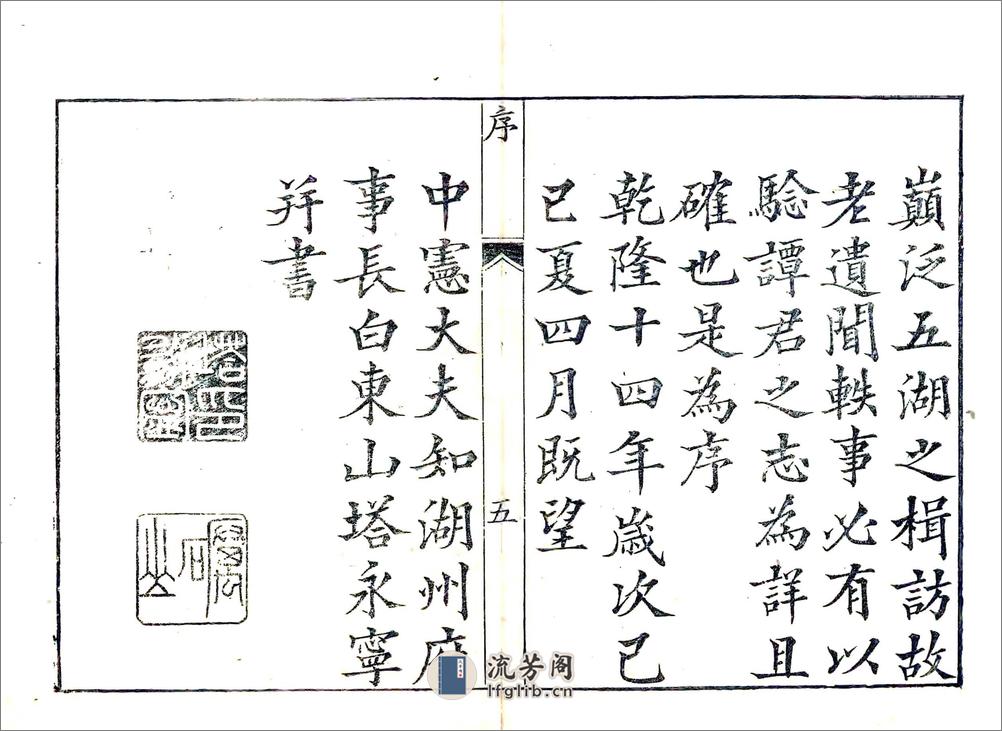 巔泛五湖之楫訪故
老遺聞軼事必有以
驗譚君之志為詳且
確也是為序
乾隆十四年歲次己
巳夏四月既望
序
五
中憲大夫知湖州府
事長白東山塔永寧
并書
流芳阁
lfglib.cn